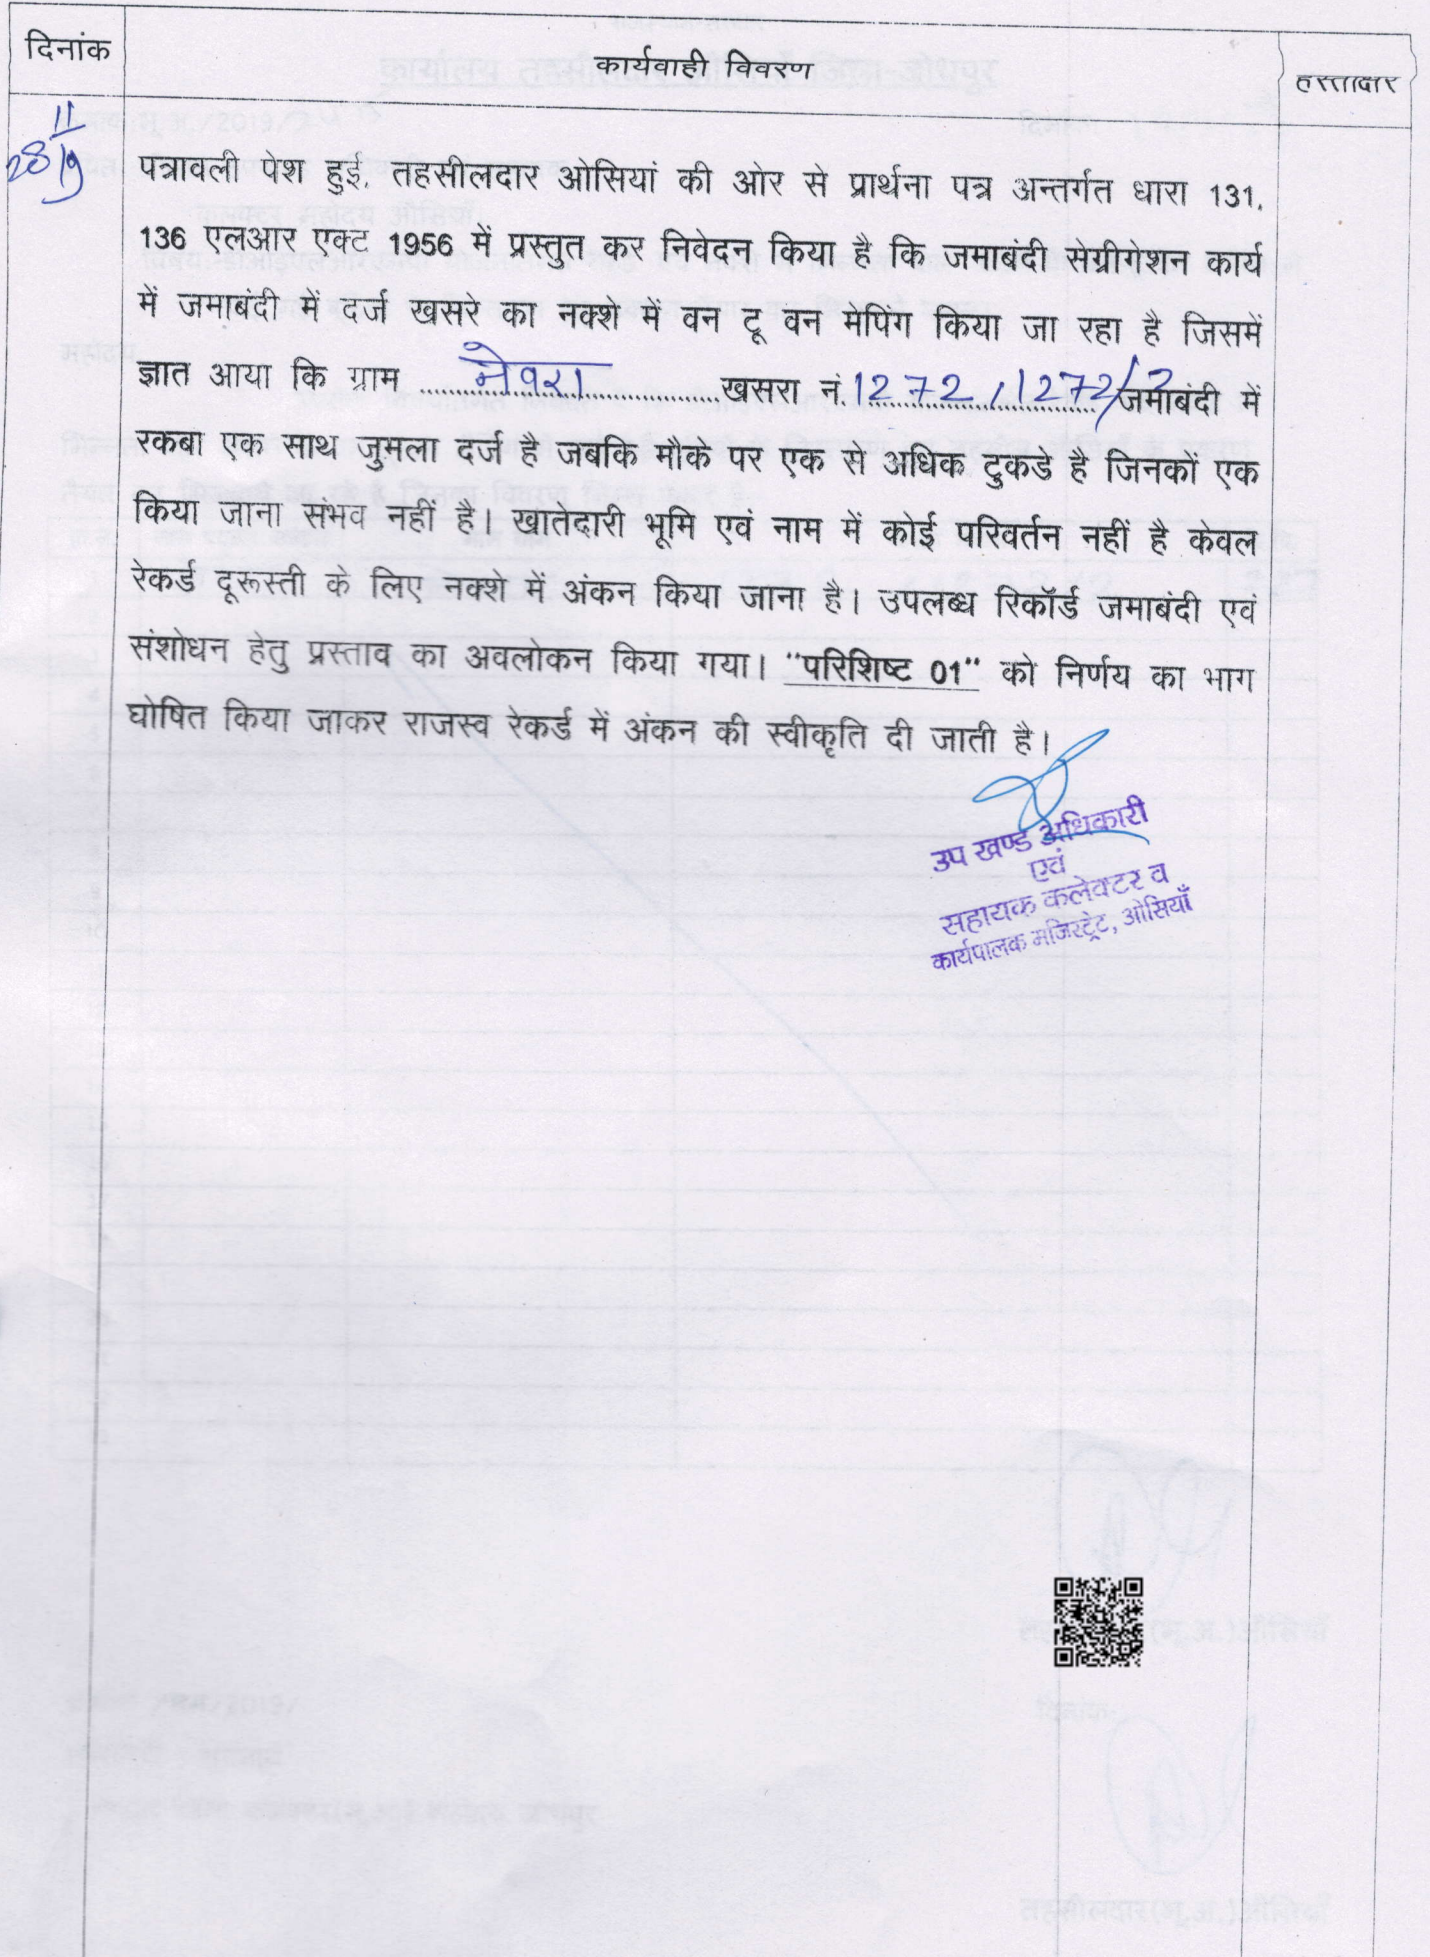 दिनांक
कार्यवाही विवरण
28/11/19
पत्रावली पेश हुई, तहसीलदार ओसियां की ओर से प्रार्थना पत्र अन्तर्गत धारा 131,
136 एलआर एक्ट 1956 में प्रस्तुत कर निवेदन किया है कि जमाबंदी सेग्रीगेशन कार्य
में जमाबंदी में दर्ज खसरे का नक्शे में वन टू वन मेपिंग किया जा रहा है जिसमें
ज्ञात आया कि ग्राम नेवरा खसरा नं. 1272, 1272/2 जमाबंदी में
रकबा एक साथ जुमला दर्ज है जबकि मौके पर एक से अधिक टुकडे है जिनकों एक
किया जाना संभव नहीं है। खातेदारी भूमि एवं नाम में कोई परिवर्तन नहीं है केवल
रेकर्ड दूरूस्ती के लिए नक्शे में अंकन किया जाना है। उपलब्ध रिकॉर्ड जमाबंदी एवं
संशोधन हेतु प्रस्ताव का अवलोकन किया गया। "परिशिष्ट 01" को निर्णय का भाग
घोषित किया जाकर राजस्व रेकर्ड में अंकन की स्वीकृति दी जाती है।
उप खण्ड अधिकारी
एवं
सहायक कलेक्टर व
कार्यपालक मजिस्ट्रेट, ओसियाँ